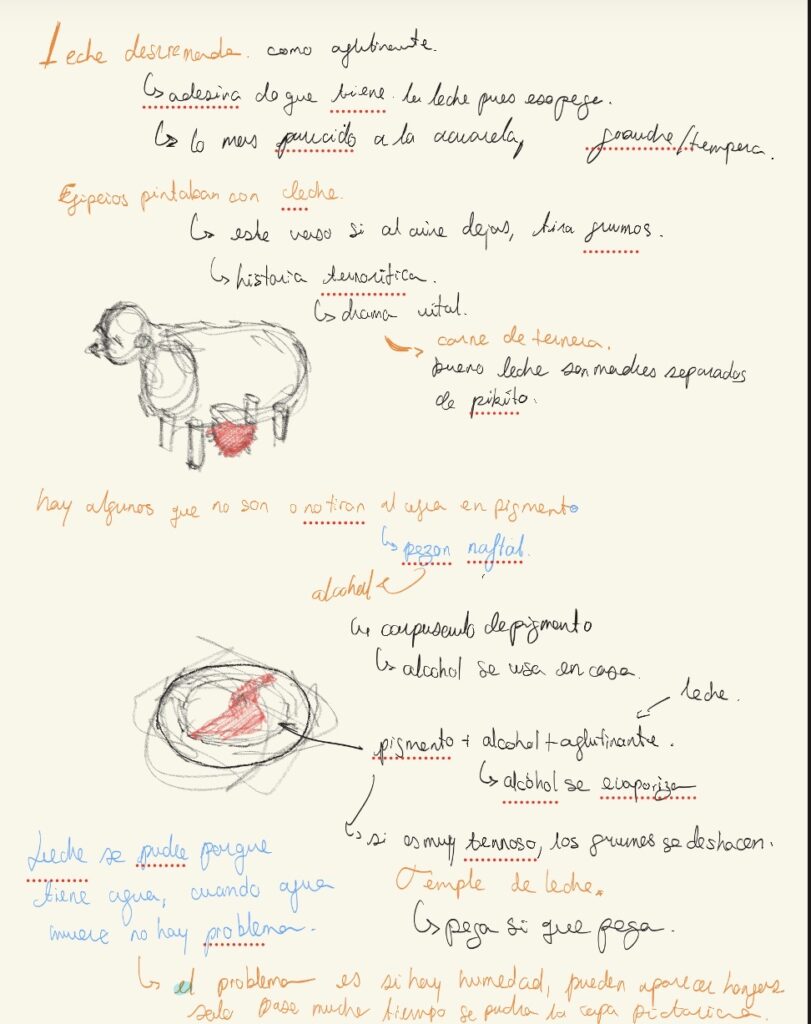 Leche desnremada. como aglutinante.
↳ adesiva do que biene la leche pues eso pega.
↳ lo mas parecido a la acuarela, gouache/tempera.
Egipcios pintaban con cleche.
↳ este verso si al aire dejas, tira grumos.
↳ historia terrorifica.
↳ drama vital.
→ carne de ternera.
bueno leche son madres separadas
de pikito.
hay algunos que no son o no tiran al agua en pigmento
↳ pezon naftal.
alcohol
↳ de pigmento
↳ alcohol se usa en capa.
leche.
pigmento + alcohol + aglutinante.
↳ alcohol se evaporiza
↳ si es muy terroso, los grumes se deshacen.
Leche se pudre porque
tiene agua, cuando agua
muere no hay problema.
Temple de leche.
↳ pega si que pega.
↳ el problema es si hay humedad, pueden aparecer hongos
solo pase mucho tiempo se pudra la capa pictorica.